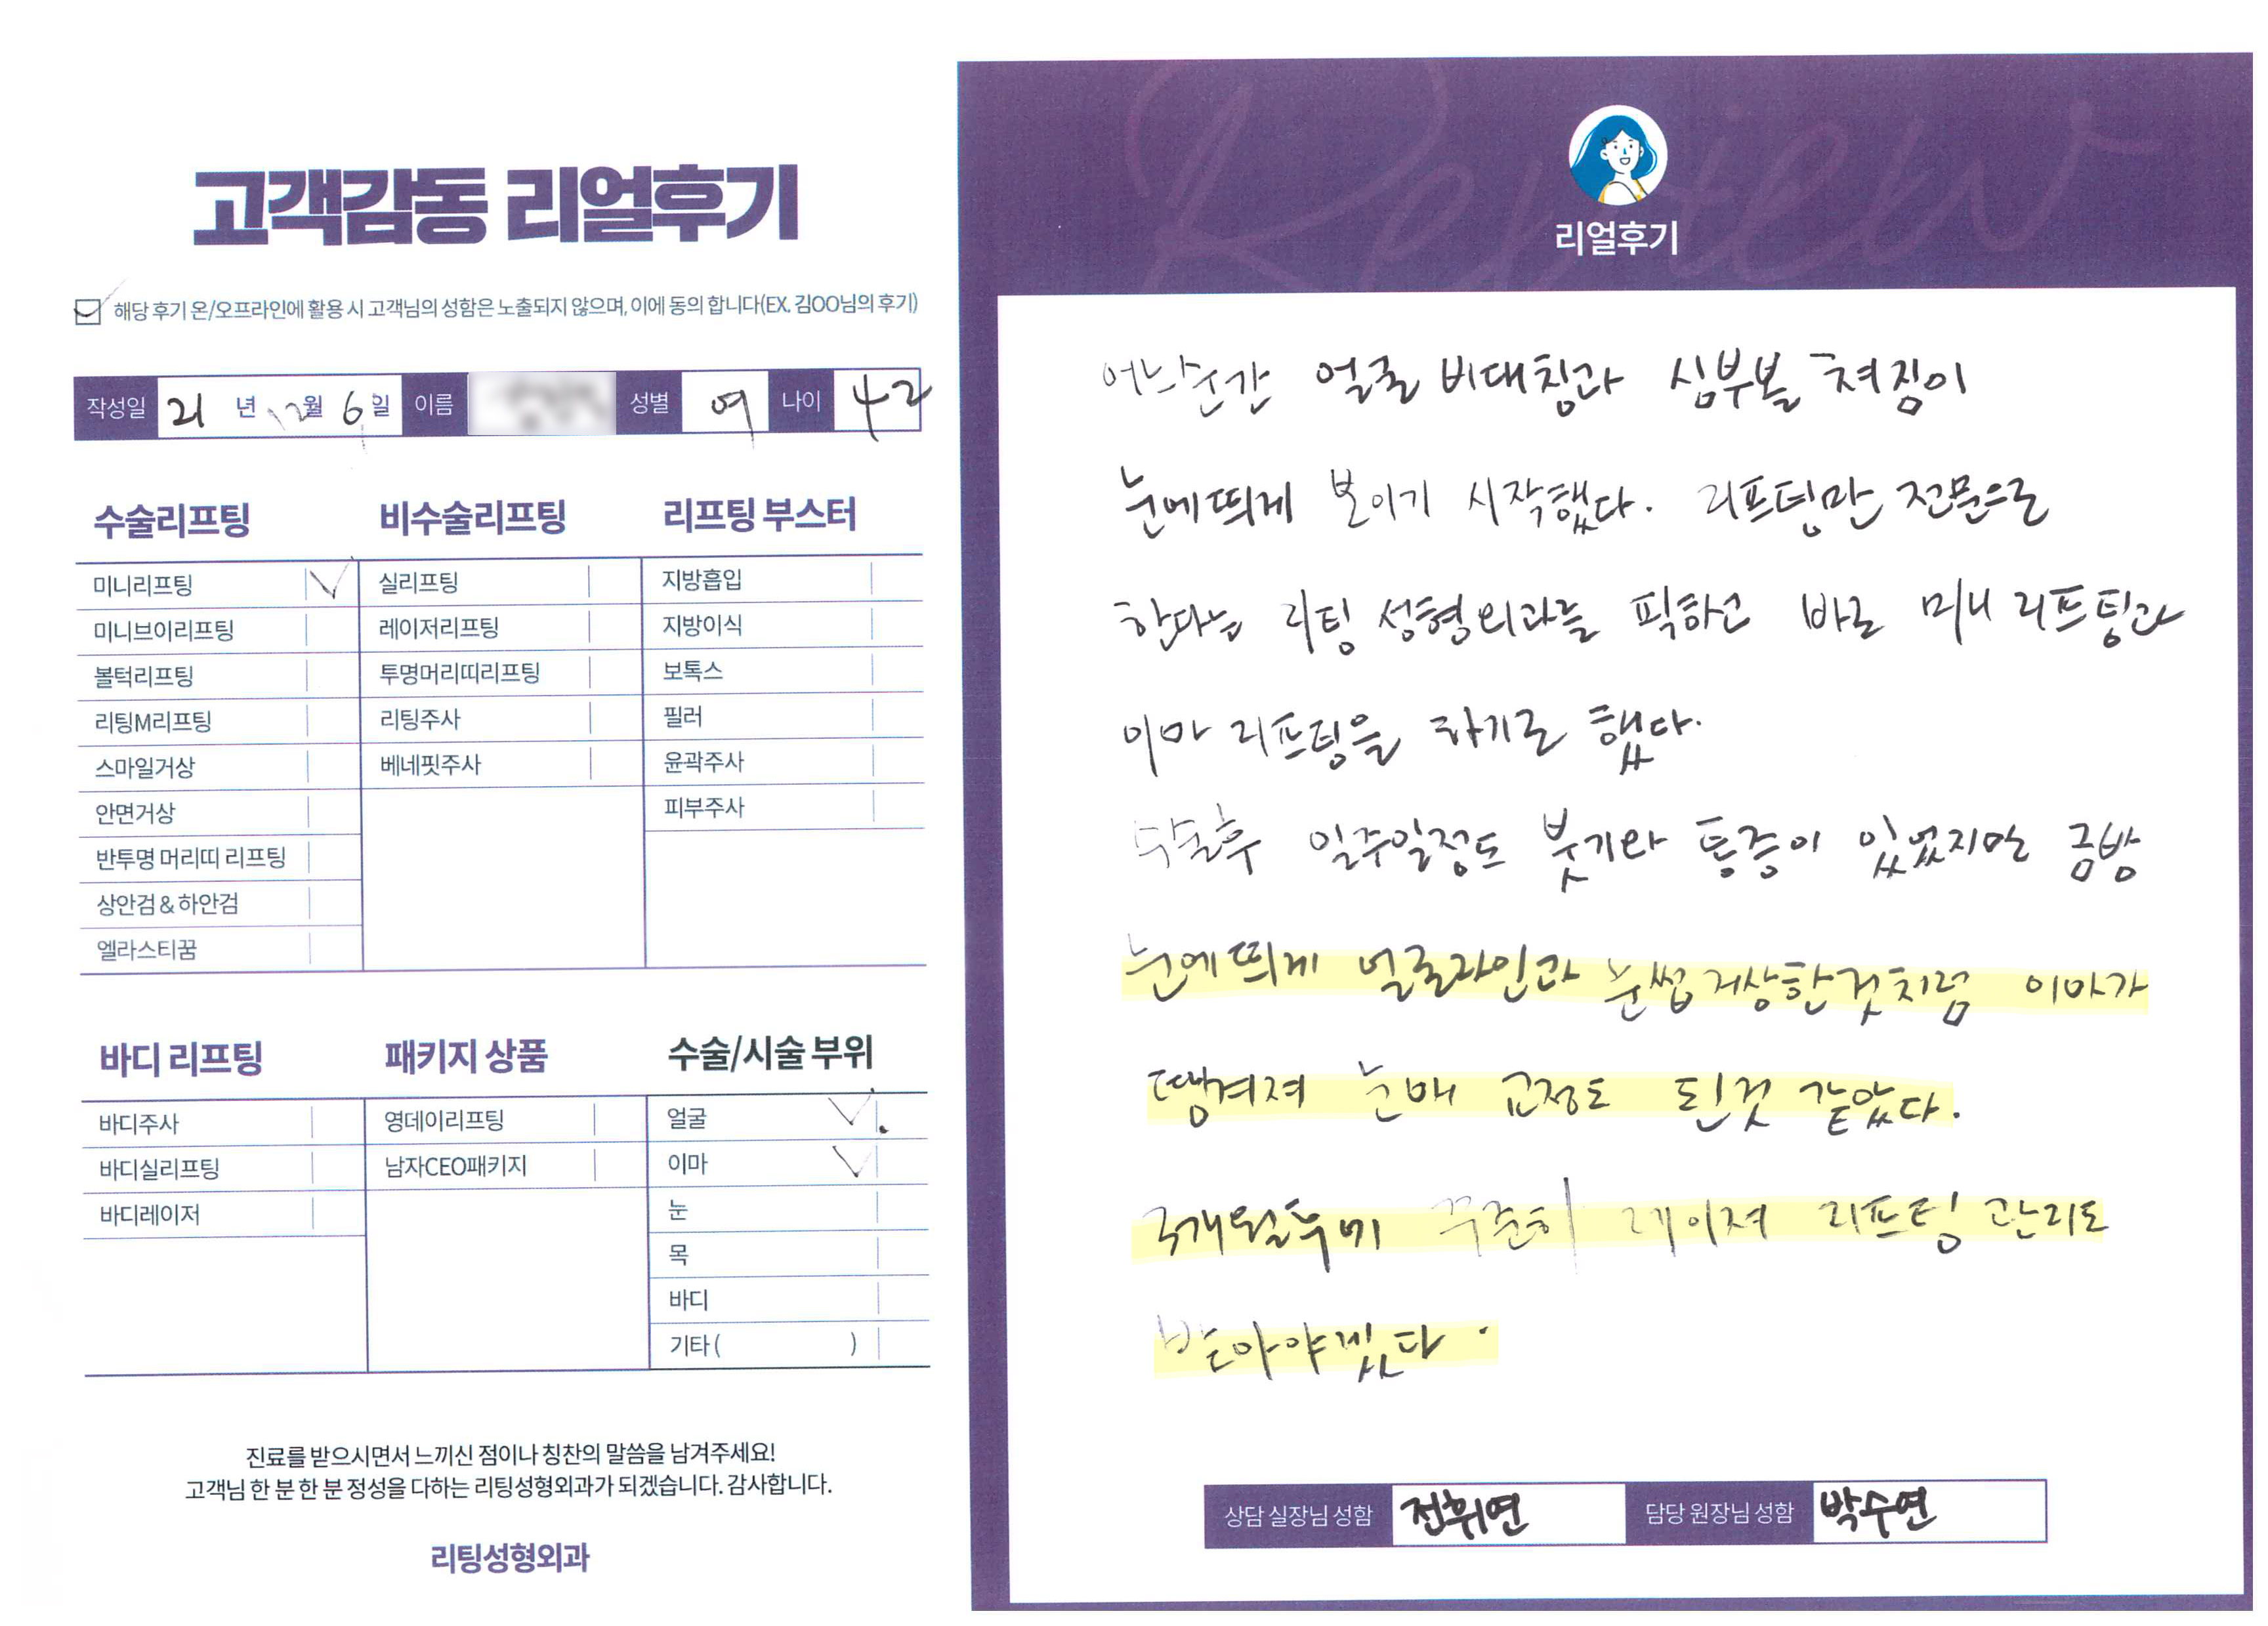 고객감동 리얼후기
해당 후기 온/오프라인에 활용 시 고객님의 성함은 노출되지 않으며, 이에 동의 합니다(EX. 김OO님의 후기)
작성일 21 년 12월 6일 이름 성별 여 나이 42
수술리프팅
미니리프팅
미니브이리프팅
볼턱리프팅
리팅M리프팅
스마일거상
안면거상
반투명 머리띠 리프팅
상안검 & 하안검
엘라스티꿈
비수술리프팅
실리프팅
레이저리프팅
투명머리띠리프팅
리팅주사
베네핏주사
리프팅 부스터
지방흡입
지방이식
보톡스
필러
윤곽주사
피부주사
바디 리프팅
바디주사
바디실리프팅
바디레이저
패키지 상품
영데이리프팅
남자CEO패키지
수술/시술 부위
얼굴
이마
눈
목
바디
기타 ( )
진료를 받으시면서 느끼신 점이나 칭찬의 말씀을 남겨주세요!
고객님 한 분 한 분 정성을 다하는 리팅성형외과가 되겠습니다. 감사합니다.
리팅성형외과
Review
리얼후기
어느순간 얼굴 비대칭과 심부볼 쳐짐이
눈에띄게 보이기 시작했다. 리프팅만 전문으로
한다는 리팅 성형외과를 픽하고 바로 미니 리프팅과
이마 리프팅을 하기로 했다.
수술후 일주일정도 붓기와 통증이 있었지만 금방
눈에띄게 얼굴라인과 눈썹거상한것처럼 이마가
땡겨져 눈매 교정도 된것 같았다.
3개월후에 꾸준히 레이져 리프팅 관리도
받아야겠다.
상담 실장님 성함 전휘연 담당 원장님 성함 박수연